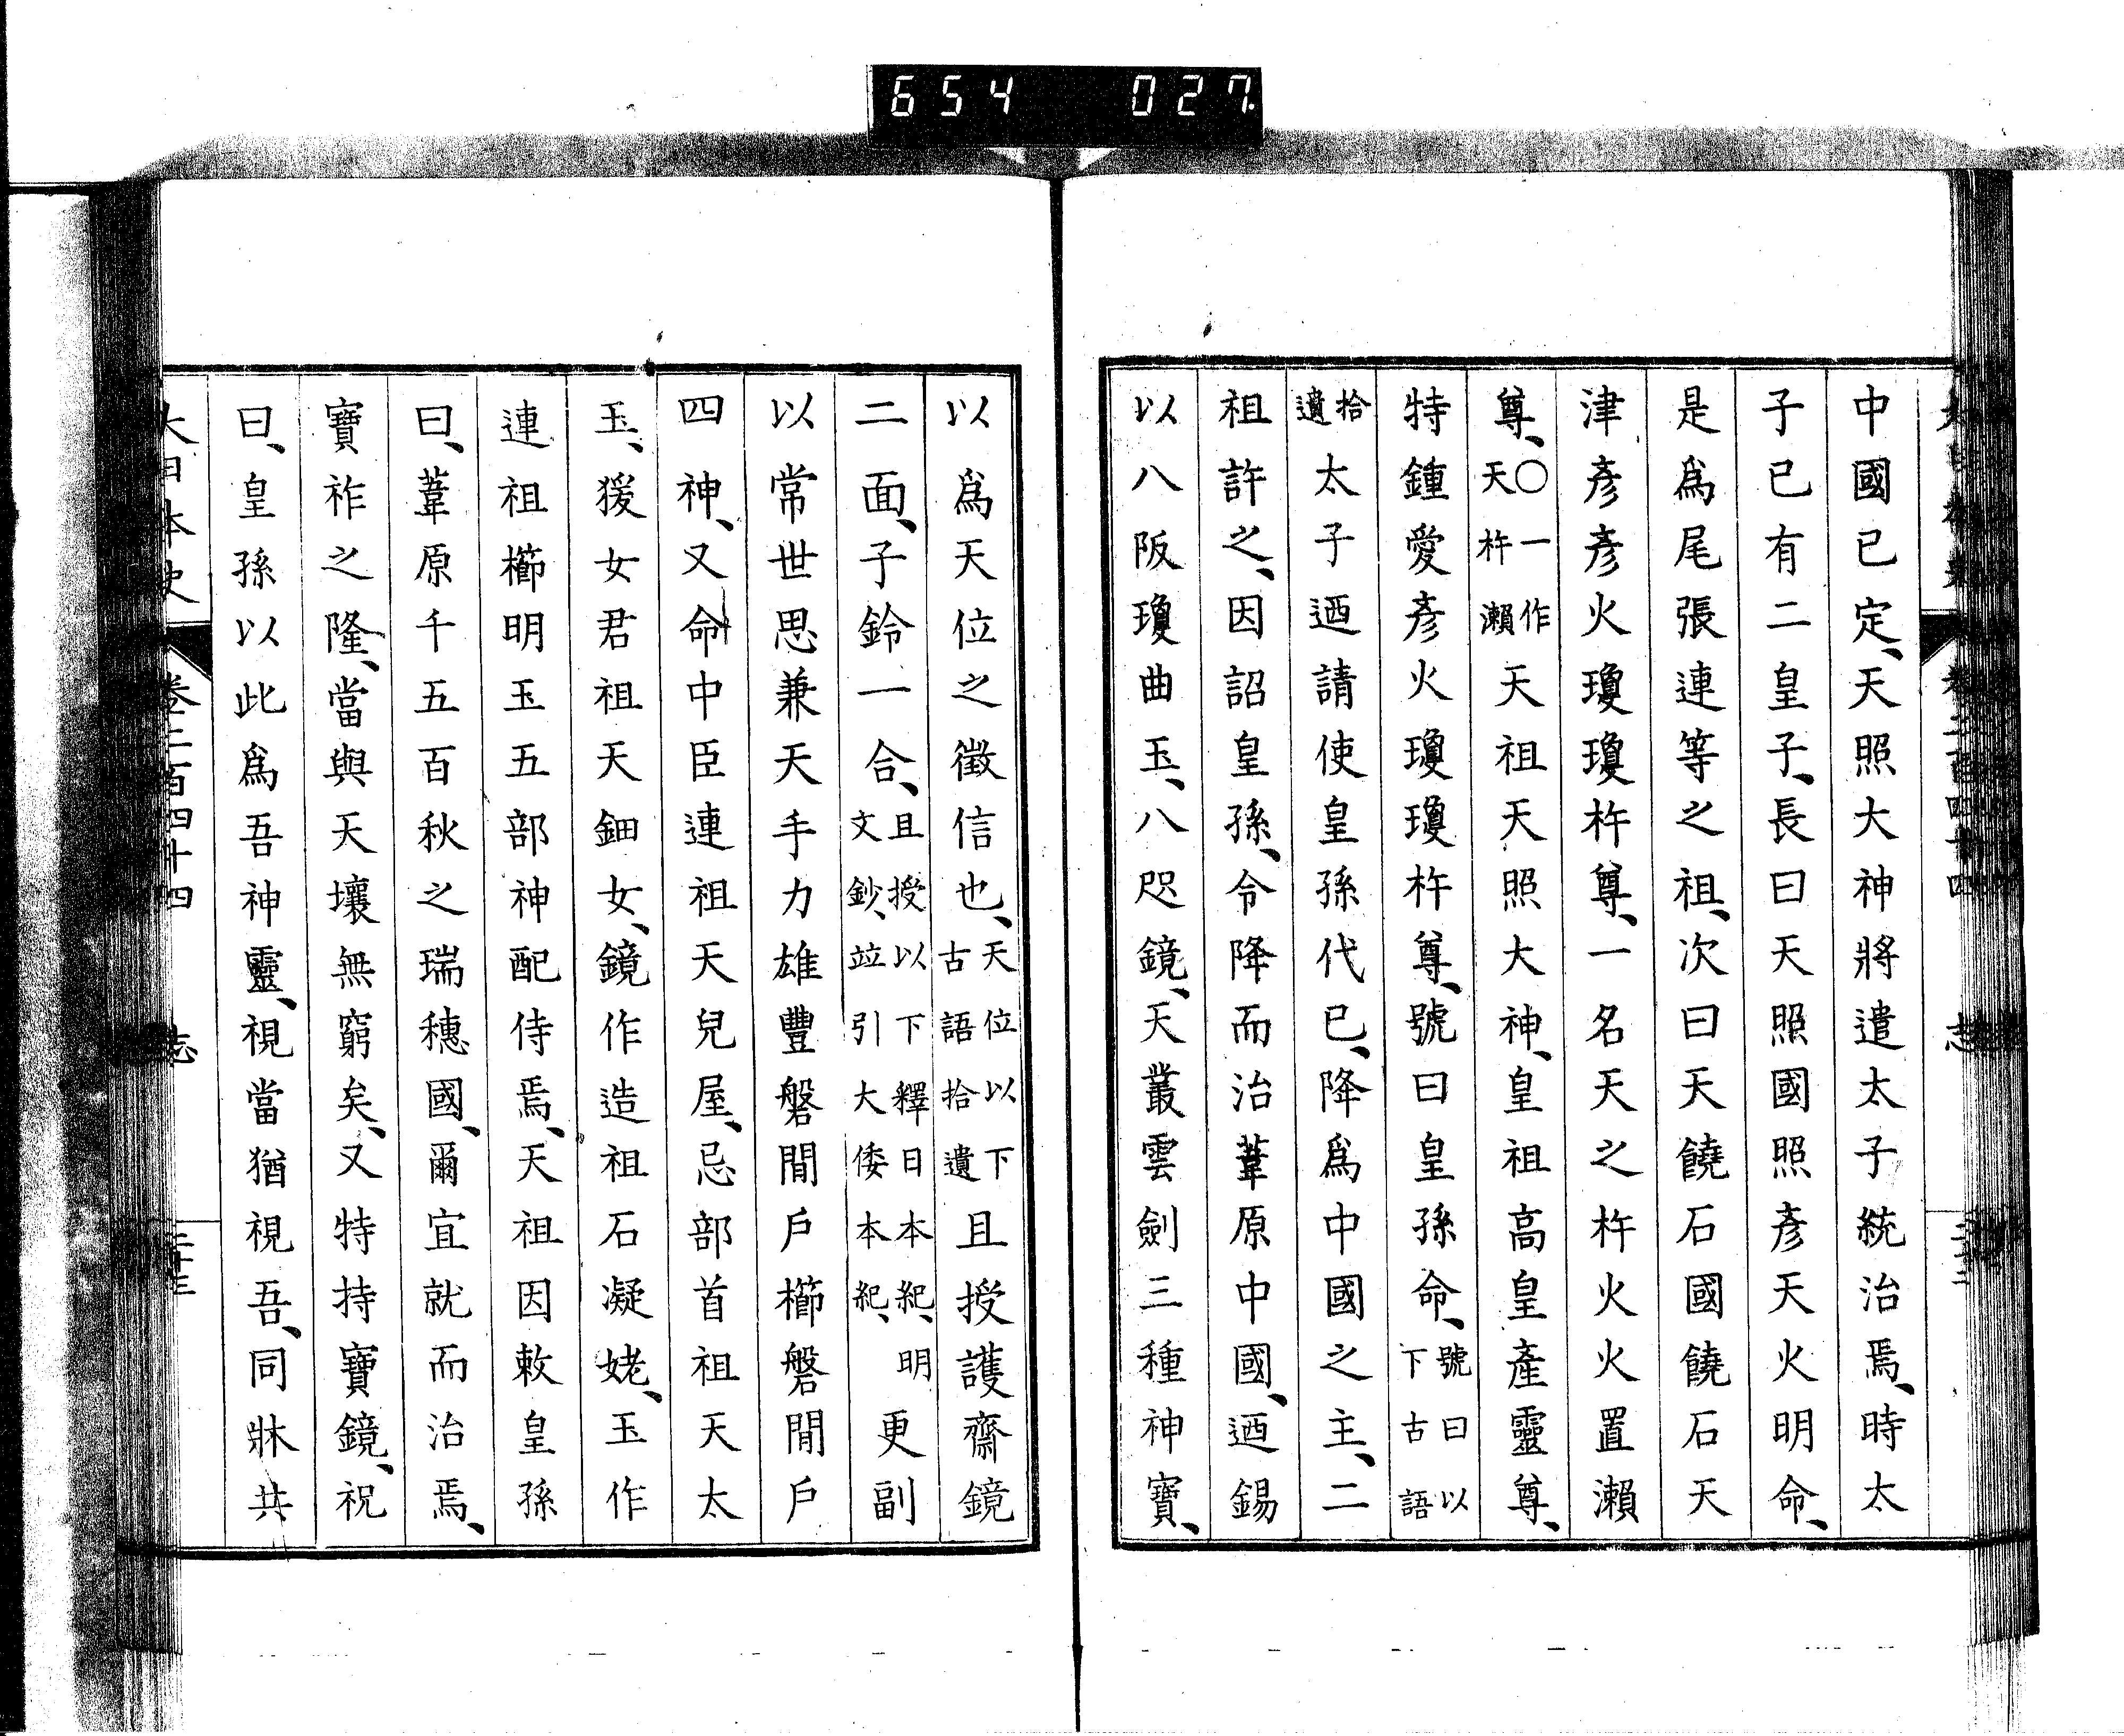 654 027.
中國已定、天照大神將遣太子統治焉、時太
子已有二皇子、長曰天照國照彥天火明命、
是爲尾張連等之祖、次曰天饒石國饒石天
津彥彥火瓊瓊杵尊、一名天之杵火火置瀨
尊、〇一作天杵瀨天祖天照大神、皇祖高皇產靈尊、
特鍾愛彥火瓊瓊杵尊、號曰皇孫命、號曰以下古語
拾遺太子迺請使皇孫代已、降爲中國之主、二
祖許之、因詔皇孫、令降而治葦原中國、迺錫
以八阪瓊曲玉、八咫鏡、天叢雲劍三種神寶、
以爲天位之徵信也、天位以下古語拾遺且授護齋鏡
二面、子鈴一合、且授以下釋日本紀、明文鈔、竝引大倭本紀、更副
以常世思兼天手力雄豐磐間戶櫛磐間戶
四神、又命中臣連祖天兒屋、忌部首祖天太
玉、猨女君祖天鈿女、鏡作造祖石凝姥、玉作
連祖櫛明玉五部神配侍焉、天祖因敕皇孫
曰、葦原千五百秋之瑞穗國、爾宜就而治焉、
寶祚之隆、當與天壤無窮矣、又特持寶鏡、祝
曰、皇孫以此爲吾神靈、視當猶視吾、同牀共
大日本史 卷二百四十四 志